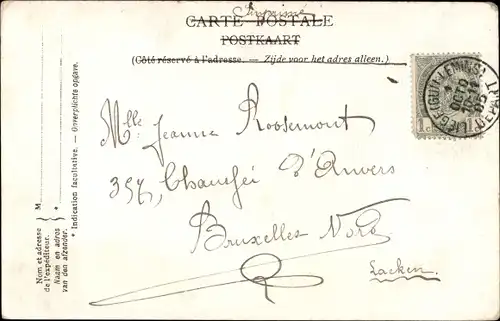 Imprimé
CARTE POSTALE
POSTKAART
(Côté réservé à l'adresse. — Zijde voor het adres alleen.)
LIÉGE (GUILLEMINS)
OCTO
1c
Mlle Jeanne Roosemont
357, Chaussée d'Anvers
Bruxelles Nord
Laeken.
M
*
Nom et adresse
de l'expéditeur.
Naam en adres
van den afzender.
* Indication facultative. — Onverplichte opgave.